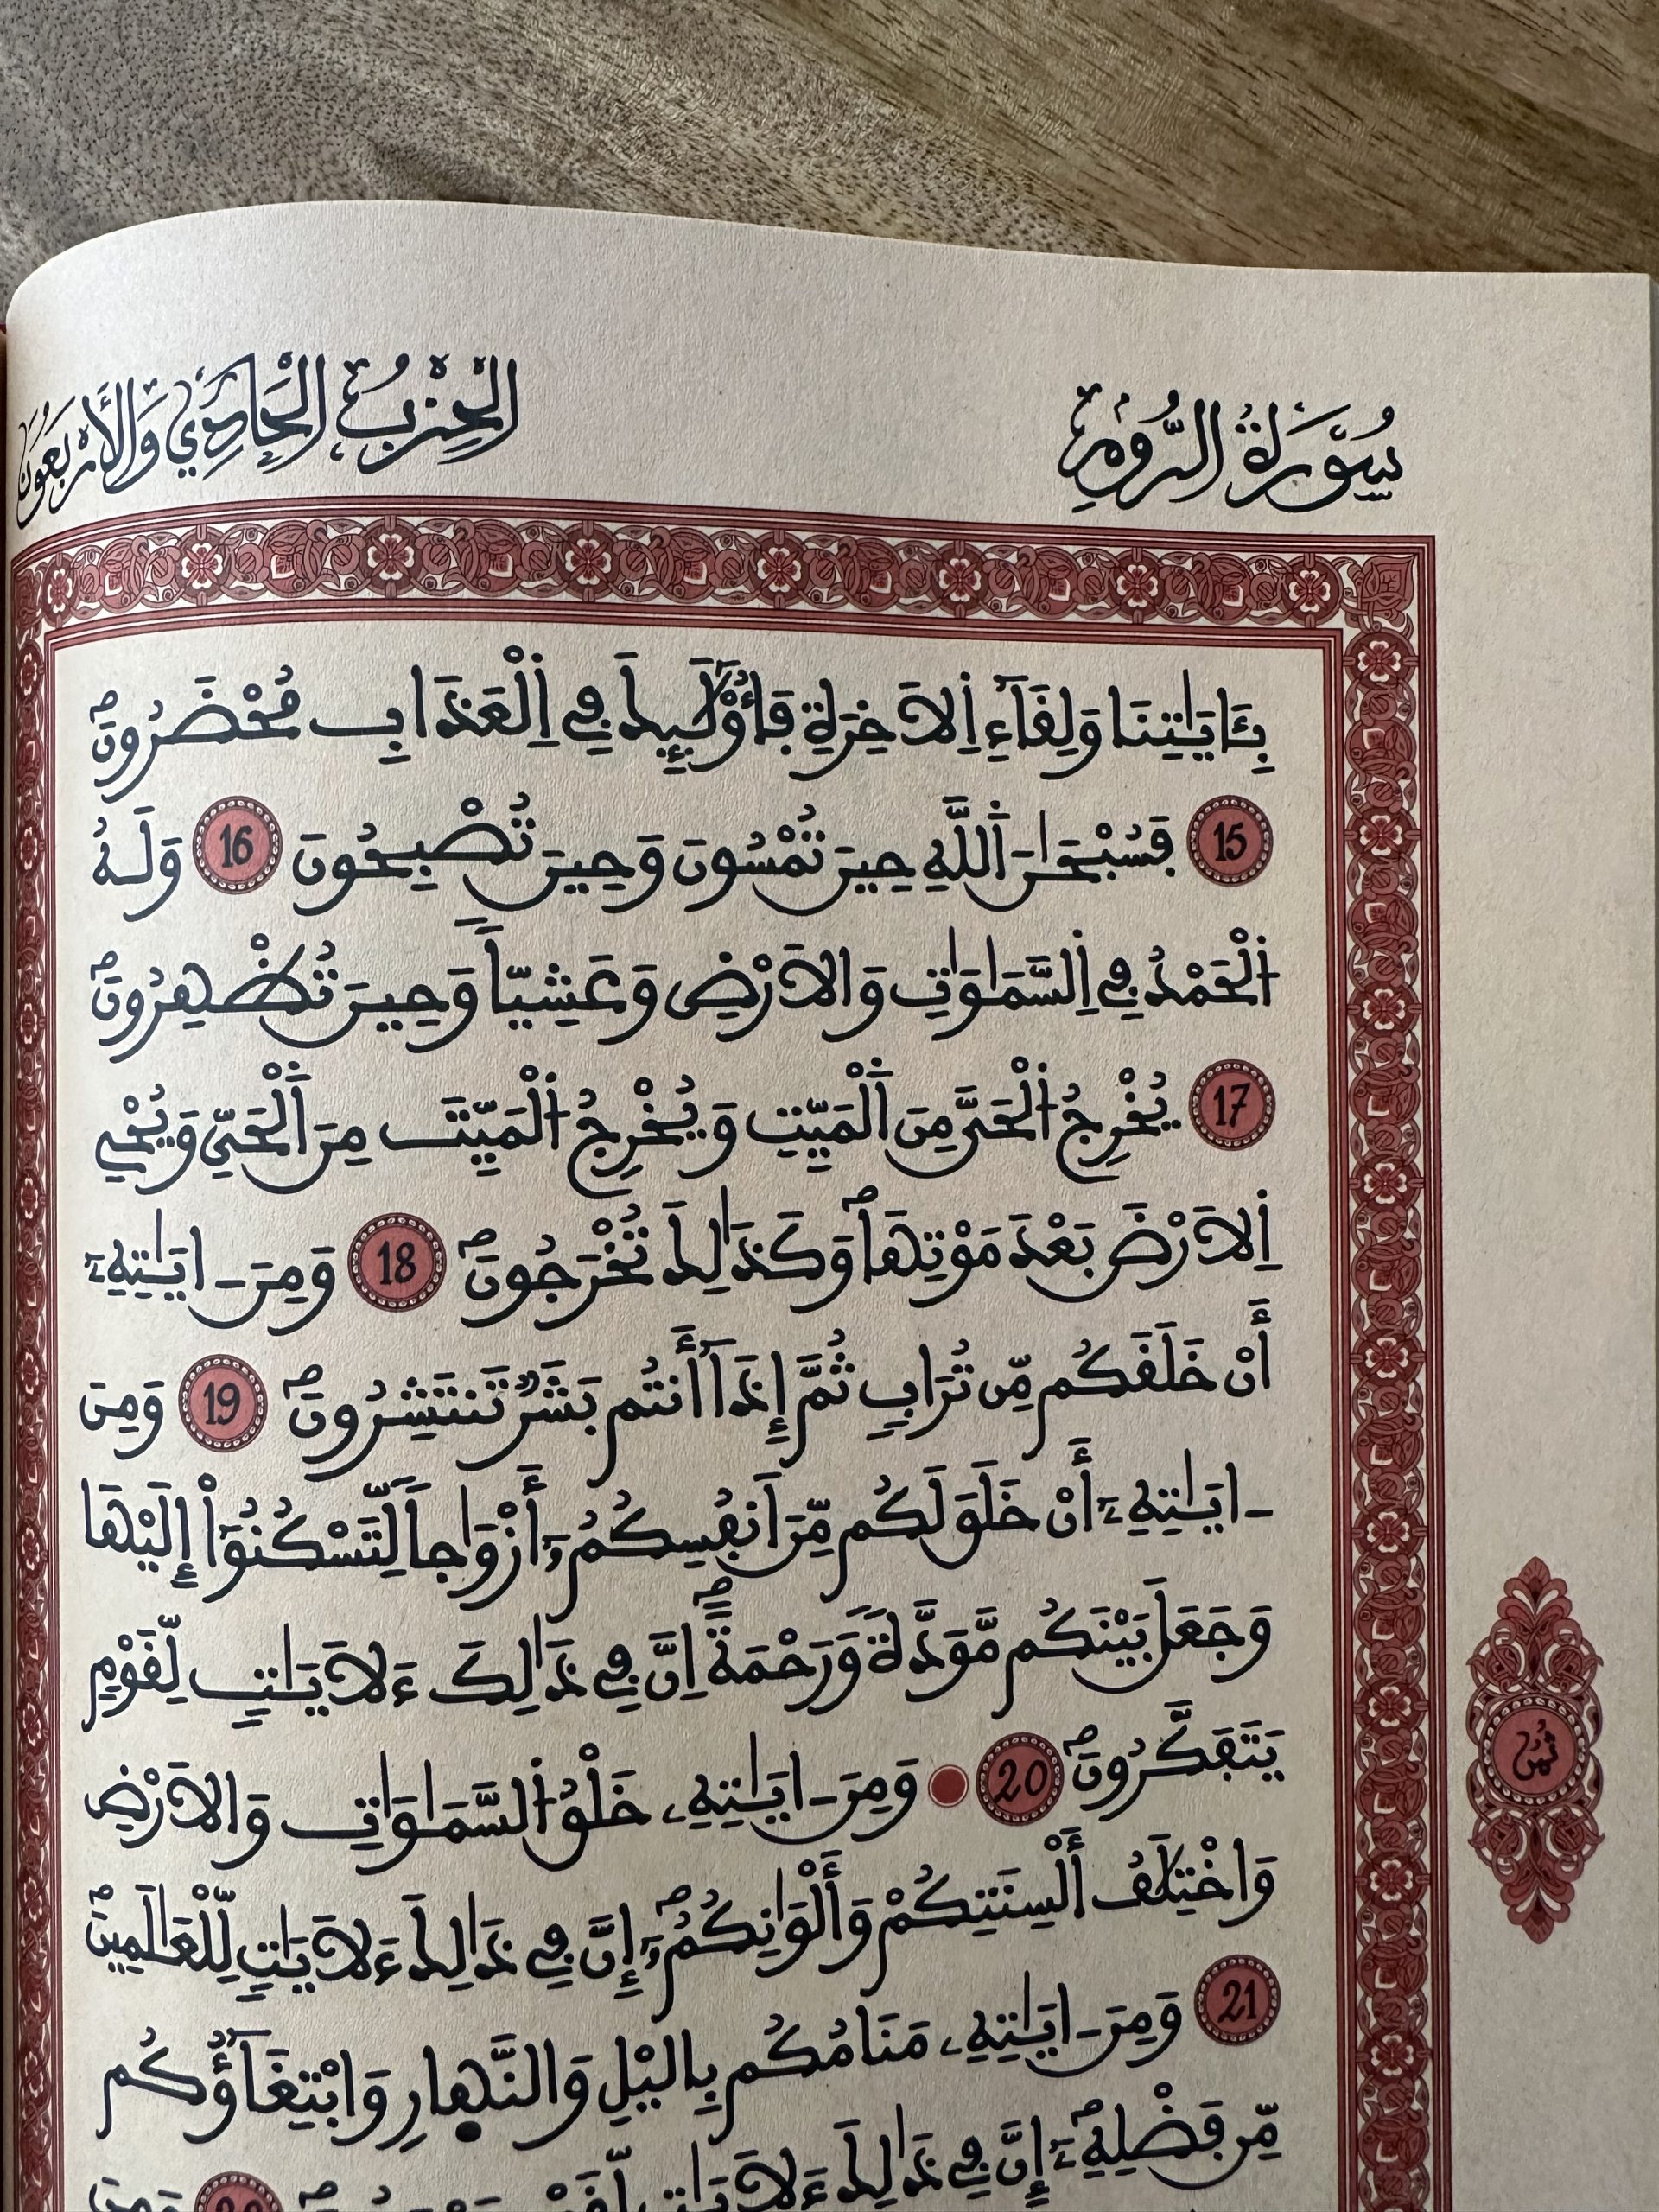 سُورَةُ الرُّومِ
الْحِزْبُ الْحَادِي وَالْأَرْبَعُونَ
بِـَٔايَٰتِنَا وَلِقَآءِ اِ۬لَاخِرَةِ فَأُوْلَٰٓئِكَ فِے اِ۬لْعَذَابِ مُحْضَرُونَۖ
15 فَسُبْحَٰنَ اَ۬للَّهِ حِينَ تُمْسُونَ وَحِينَ تُصْبِحُونَ 16 وَلَهُ
اُ۬لْحَمْدُ فِے اِ۬لسَّمَٰوَٰتِ وَالَارْضِ وَعَشِيّاً وَحِينَ تُظْهِرُونَۖ
17 يُخْرِجُ اُ۬لْحَيَّ مِنَ اَ۬لْمَيِّتِ وَيُخْرِجُ اُ۬لْمَيِّتَ مِنَ اَ۬لْحَيِّ وَيُحْيِ
اِ۬لَارْضَ بَعْدَ مَوْتِهَاۖ وَكَذَٰلِكَ تُخْرَجُونَۖ 18 وَمِنَ اٰيَٰتِهِۦٓ
أَنْ خَلَقَكُم مِّن تُرَابٖ ثُمَّ إِذَآ أَنتُم بَشَرٞ تَنتَشِرُونَۖ 19 وَمِنَ
اٰيَٰتِهِۦٓ أَنْ خَلَقَ لَكُم مِّنَ اَنفُسِكُمُۥٓ أَزْوَٰجاً لِّتَسْكُنُوٓاْ إِلَيْهَا
وَجَعَلَ بَيْنَكُم مَّوَدَّةٗ وَرَحْمَةًۖ اِنَّ فِے ذَٰلِكَ ءَلَايَٰتٖ لِّقَوْمٖ
يَتَفَكَّرُونَۖ 20 وَمِنَ اٰيَٰتِهِۦ خَلْقُ اُ۬لسَّمَٰوَٰتِ وَالَارْضِ
وَاخْتِلَٰفُ أَلْسِنَتِكُمْ وَأَلْوَٰنِكُمُۥٓۖ إِنَّ فِے ذَٰلِكَ ءَلَايَٰتٖ لِّلْعَٰلَمِينَۖ
ثُمُن
21 وَمِنَ اٰيَٰتِهِۦ مَنَامُكُم بِاليْلِ وَالنَّهٰارِ وَابْتِغَآؤُكُم
مِّن فَضْلِهِۦٓۖ إِنَّ فِے ذَٰلِكَ ءَلَايَٰتٖ